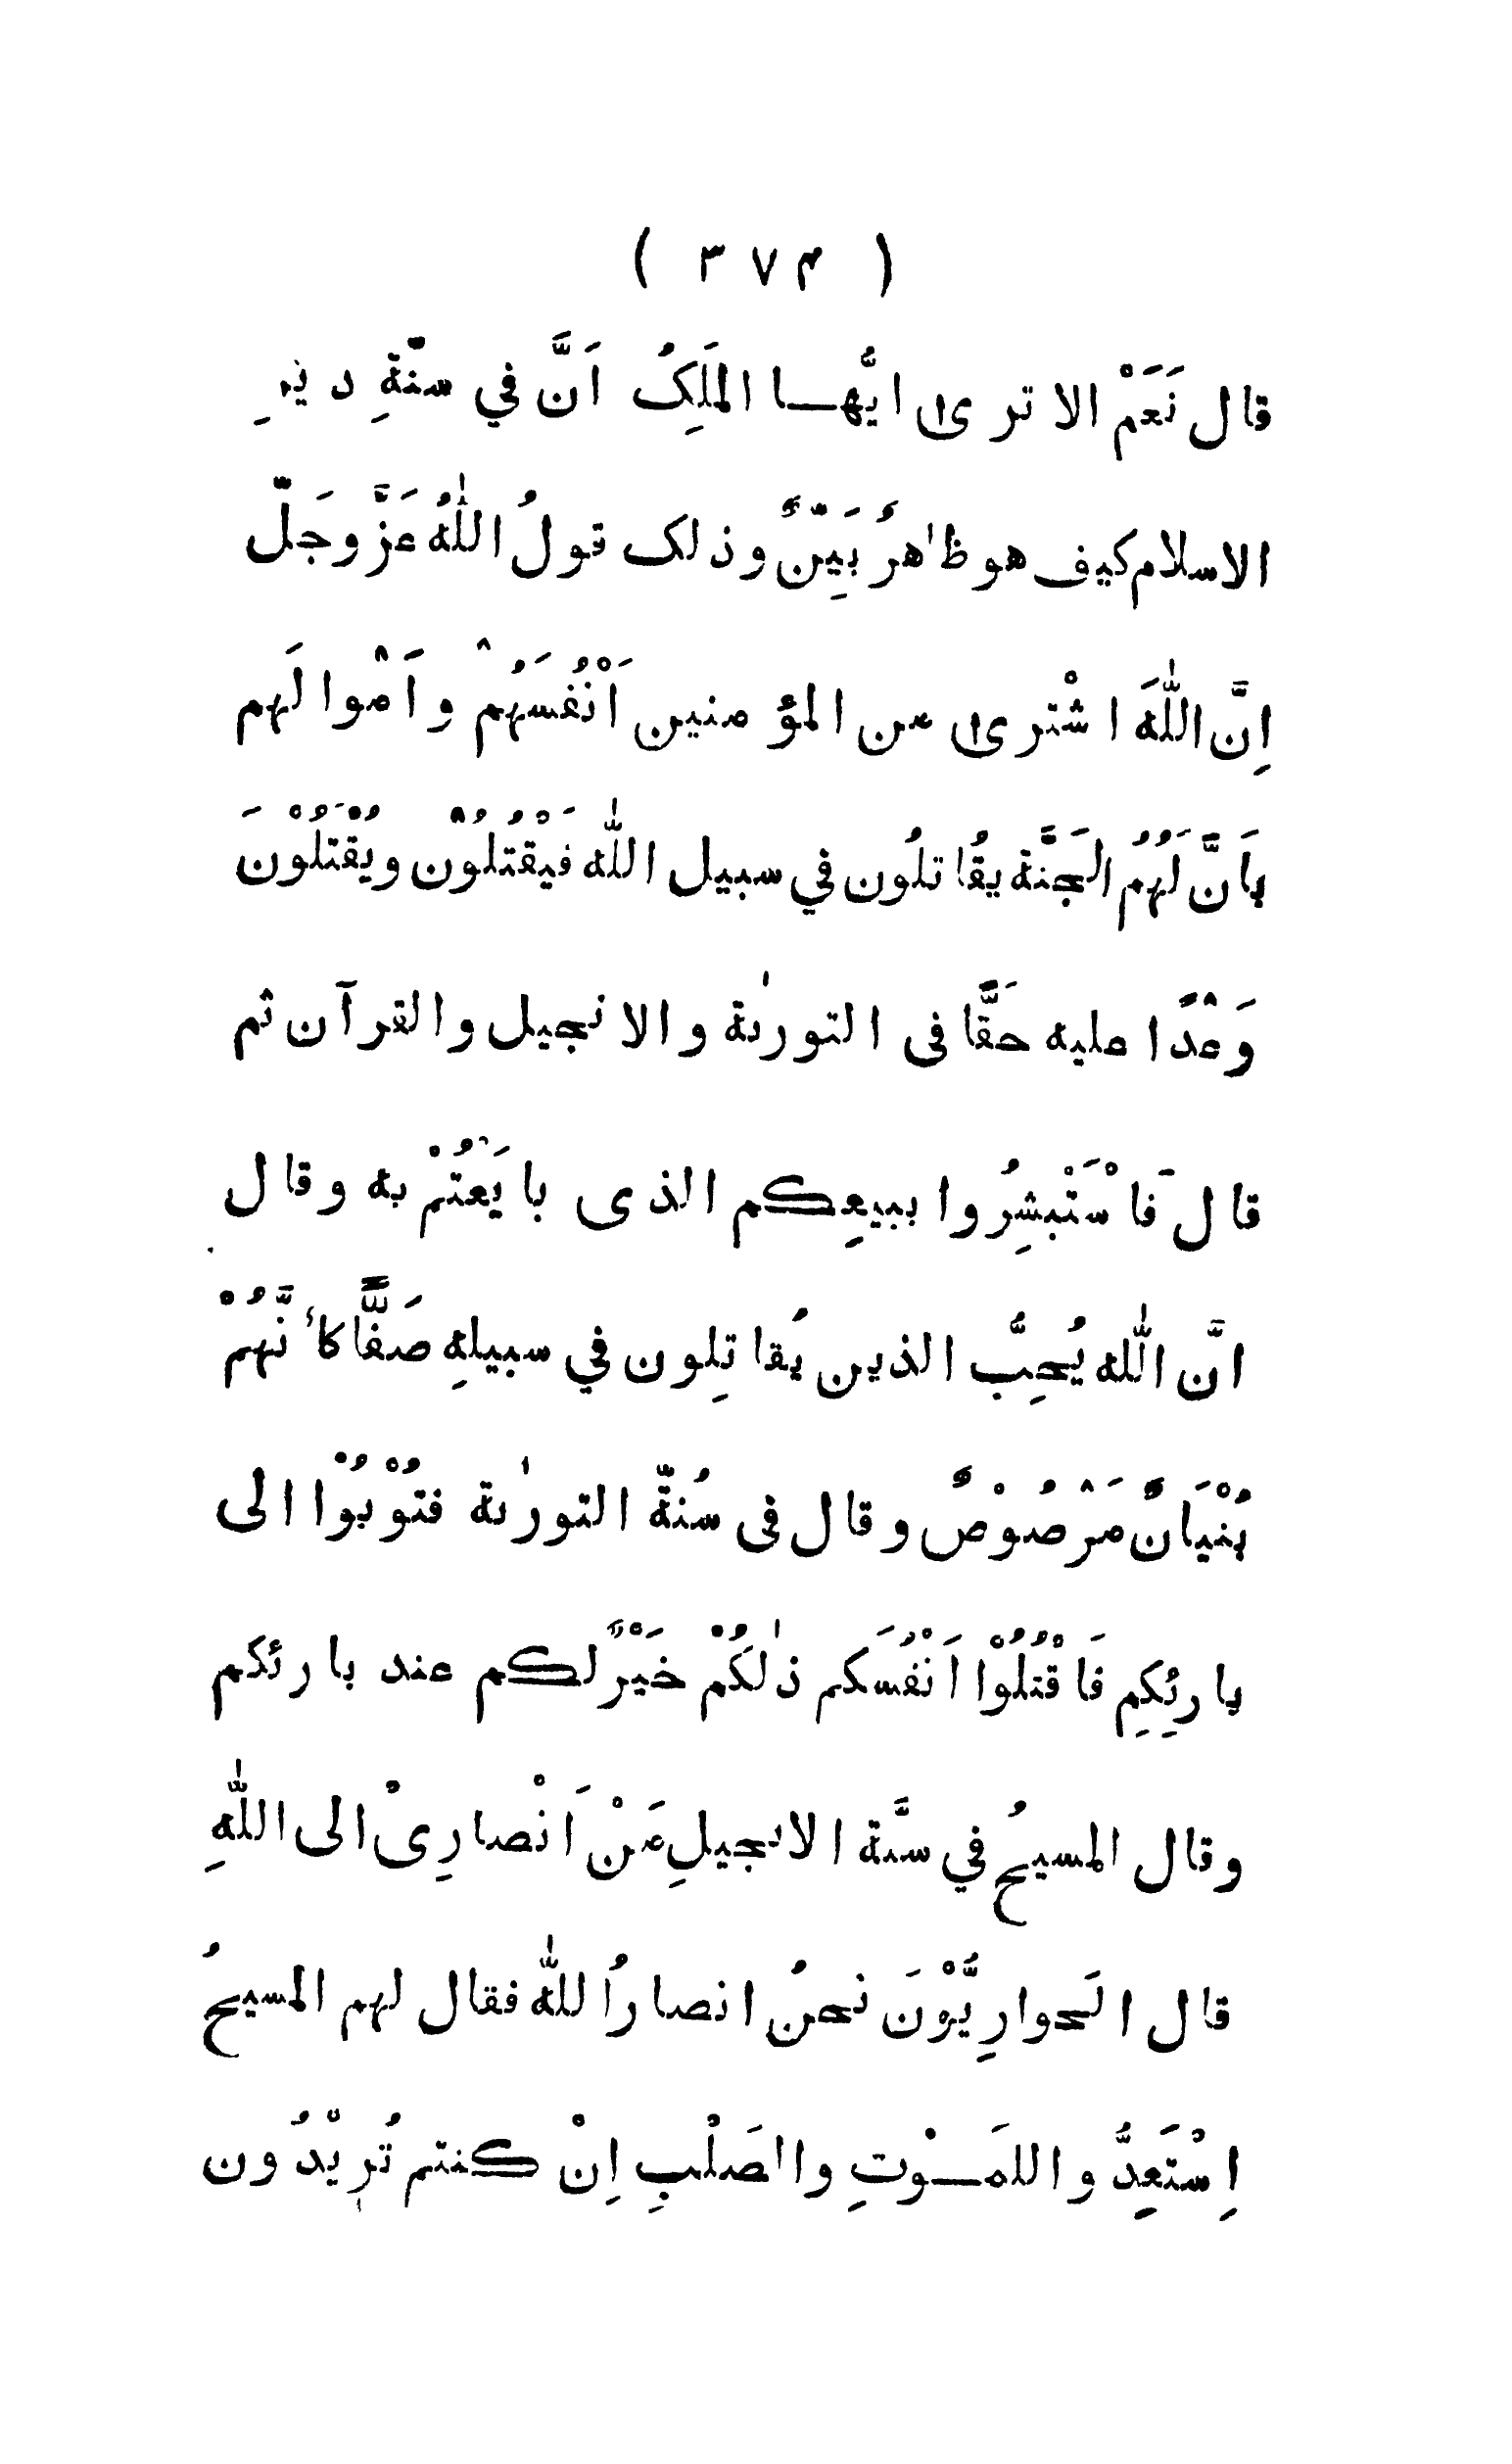 ( ٣٧۴ )
قال نَعَمْ الا ترىٰ ايُّهـا المَلَكِ اَنَّ في سنّةِ دين
الاسلام كيف هو ظٰاهرٌ بَيِّنٌ وذلك قولُ اللّٰهُ عَزَّ وجَلّ
اِنَّ اللّٰهَ اشْترىٰ من المؤمنين اَنْفُسَهُمْ واَمْوالَهم
بِاَنَّ لَهُمُ الجَنَّة يقُاتلُون في سبيل اللّٰه فَيَقْتُلُوْن ويُقْتَلُوْنَ
وَعْدًا عليه حَقَّا فى التورٰىة والانجيل والقرآن ثم
قال فَاسْتَبْشِرُوا ببيعِكم الذى بايَعْتُمْ به وقال
انَّ اللّٰه يُحِبُّ الذين يُقاتِلون في سبيلهِ صَفًّا كأنَّهُمْ
بُنْيَانٌ مَرْصُوْصٌ وقال فى سُنّة التورٰىة فتُوْبُوْا الى
بارِئِكِم فَاقْتُلُوْا اَنْفُسَكم ذٰلكُمْ خَيْرٌ لكم عند بارئكم
وقال المسيحُ في سنَّة الانجيلِ مَنْ اَنْصارِىْ الى اللّٰهِ
قال الحَوارِيُّوْنَ نحنُ انصارُ اللّٰه فقال لهم المسيحُ
اِسْتَعِدُّوا للمَـوْتِ والصَلْبِ اِنْ كنتم تُرِيْدُون